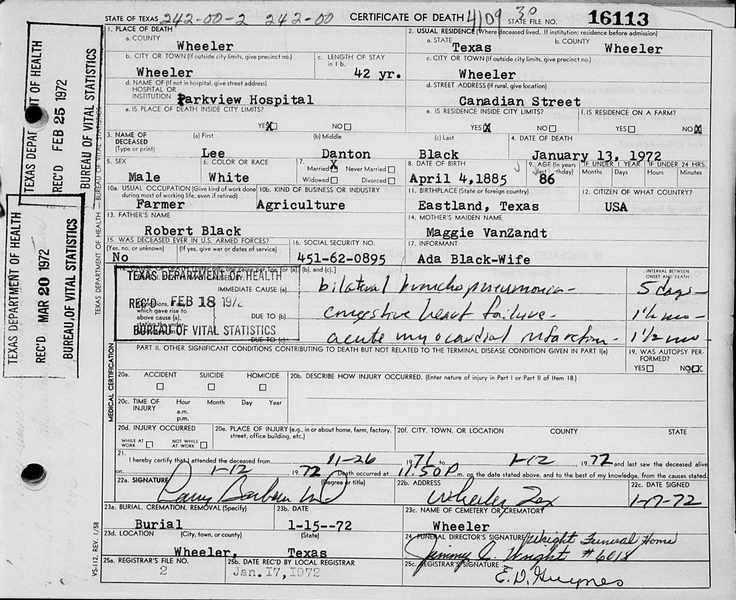 STATE OF TEXAS 242-00-2 242-00 CERTIFICATE OF DEATH 4109 30 STATE FILE NO. 16113
1. PLACE OF DEATH
a. COUNTY
Wheeler
2. USUAL RESIDENCE (Where deceased lived. If institution: residence before admission)
a. STATE
Texas
b. COUNTY
Wheeler
b. CITY OR TOWN (If outside city limits, give precinct no.)
Wheeler
c. LENGTH OF STAY
in 1 b.
42 yr.
c. CITY OR TOWN (If outside city limits, give precinct no.)
Wheeler
d. NAME OF (If not in hospital, give street address)
HOSPITAL OR
INSTITUTION
Parkview Hospital
d. STREET ADDRESS (If rural, give location)
Canadian Street
e. IS PLACE OF DEATH INSIDE CITY LIMITS?
YES X NO
e. IS RESIDENCE INSIDE CITY LIMITS?
YES X NO
f. IS RESIDENCE ON A FARM?
YES NO X
3. NAME OF
DECEASED
(Type or print)
(a) First
Lee
(b) Middle
Danton
(c) Last
Black
4. DATE OF DEATH
January 13, 1972
5. SEX
Male
6. COLOR OR RACE
White
7.
Married X Never Married
Widowed Divorced
8. DATE OF BIRTH
April 4,1885
9. AGE (In years
last birthday)
86
IF UNDER 1 YEAR
Months Days
IF UNDER 24 HRS.
Hours Minutes
10a. USUAL OCCUPATION (Give kind of work done
during most of working life, even if retired)
Farmer
10b. KIND OF BUSINESS OR INDUSTRY
Agriculture
11. BIRTHPLACE (State or foreign country)
Eastland, Texas
12. CITIZEN OF WHAT COUNTRY?
USA
13. FATHER'S NAME
Robert Black
14. MOTHER'S MAIDEN NAME
Maggie VanZandt
15. WAS DECEASED EVER IN U.S. ARMED FORCES?
(Yes, no, or unknown) (If yes, give war or dates of service)
No
16. SOCIAL SECURITY NO.
451-62-0895
17. INFORMANT
Ada Black-Wife
TEXAS DEPARTMENT OF HEALTH
REC'D FEB 18 1972
BUREAU OF VITAL STATISTICS
IMMEDIATE CAUSE (a)
bilateral bronchopneumonia
INTERVAL BETWEEN
ONSET AND DEATH
5 days
which gave rise to
above cause (a),
DUE TO (b)
congestive heart failure
1 1/2 mo
DUE TO (c)
acute myocardial infarction
1 1/2 mo
PART II. OTHER SIGNIFICANT CONDITIONS CONTRIBUTING TO DEATH BUT NOT RELATED TO THE TERMINAL DISEASE CONDITION GIVEN IN PART I(a)
19. WAS AUTOPSY PERFORMED?
YES NO X
MEDICAL CERTIFICATION
20a. ACCIDENT SUICIDE HOMICIDE
20b. DESCRIBE HOW INJURY OCCURRED. (Enter nature of injury in Part I or Part II of Item 18.)
20c. TIME OF
INJURY
Hour Month Day Year
a.m.
p.m.
20d. INJURY OCCURRED
WHILE AT
WORK
NOT WHILE
AT WORK
20e. PLACE OF INJURY (e.g., in or about home, farm, factory,
street, office building, etc.)
20f. CITY, TOWN, OR LOCATION COUNTY STATE
21.
I hereby certify that I attended the deceased from 11-26 1971 to 1-12 1972 and last saw the deceased alive
on 1-12 1972 Death occurred at 11:50 P m. on the date stated above, and to the best of my knowledge, from the causes stated.
22a. SIGNATURE
(Degree or title)
22b. ADDRESS
Wheeler Tex
22c. DATE SIGNED
1-17-72
23a. BURIAL, CREMATION, REMOVAL (Specify)
Burial
23b. DATE
1-15--72
23c. NAME OF CEMETERY OR CREMATORY
Wheeler
23d. LOCATION (City, town, or county) (State)
Wheeler, Texas
24. FUNERAL DIRECTOR'S SIGNATURE
Wright Funeral Home
Jimmy C. Wright #6018
25a. REGISTRAR'S FILE NO.
2
25b. DATE REC'D BY LOCAL REGISTRAR
Jan. 17, 1972
25c. REGISTRAR'S SIGNATURE
VS-112, REV. 1/58
TEXAS DEPARTMENT OF HEALTH
REC'D FEB 25 1972
BUREAU OF VITAL STATISTICS
TEXAS DEPARTMENT OF HEALTH
REC'D MAR 20 1972
BUREAU OF VITAL STATISTICS